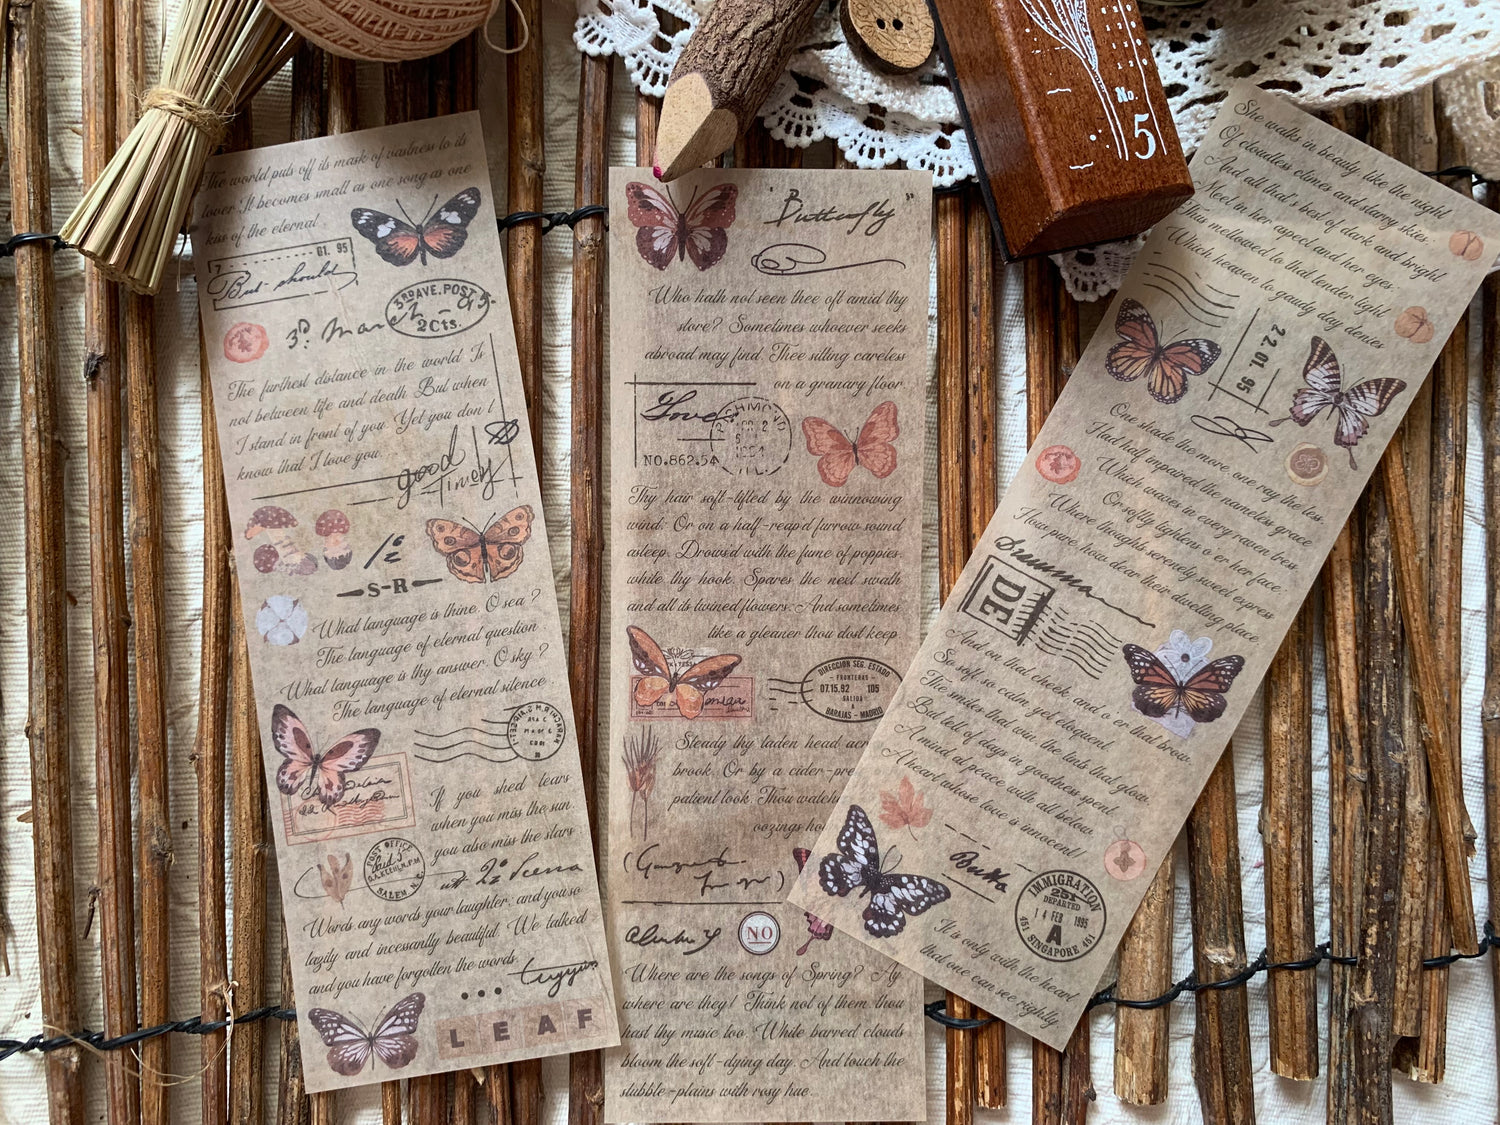 The world puts off its mask of vastness to its
lover. It becomes small as one song as one
kiss of the eternal.
01. 95
But should
3RD AVE. POST
2Cts.
3.D Mar
The furthest distance in the world Is
not between life and death But when
I stand in front of you Yet you don t
know that I love you.
good
Timely
S-R
What language is thine. O sea ?
The language of eternal question
What language is thy answer. O sky ?
The language of eternal silence .
If you shed tears
when you miss the sun.
you also miss the stars
POST OFFICE
SALEM
Words any words your laughter; and you so
lazily and incessantly beautiful. We talked
and you have forgotten the words
LEAF
"Butterfly"
Who hath not seen thee oft amid thy
store? Sometimes whoever seeks
abroad may find. Thee sitting careless
on a granary floor.
Love
NO.862.54
Thy hair soft-lifted by the winnowing
wind; Or on a half-reap'd furrow sound
asleep. Drows'd with the fume of poppies.
while thy hook. Spares the next swath
and all its twined flowers: And sometimes
like a gleaner thou dost keep.
DIRECCION SEG. ESTADO
FRONTERAS
07.15.92 105
SALIDA
BARAJAS - MADRID
Steady thy laden head
brook. Or by a cider-
patient look. Thou
oozings
NO
Where are the songs of Spring? Ay
where are they? Think not of them thou
hast thy music too. While barred clouds
bloom the soft-dying day. And touch the
stubble-plains with rosy hue.
No.
5
She walks in beauty like the night
Of cloudless climes and starry skies;
And all that's best of dark and bright
Meet in her aspect and her eyes;
Thus mellowed to that tender light
Which heaven to gaudy day denies
22. 01. 95
One shade the more, one ray the less.
Had half impaired the nameless grace
Which waves in every raven tress.
Or softly lightens o er her face;
Where thoughts serenely sweet express
How pure how dear their dwelling place.
DE
And on that cheek and o er that brow.
So soft so calm yet eloquent
The smiles that win the tints that glow.
But tell of days in goodness spent
A mind at peace with all below.
A heart whose love is innocent!
IMMIGRATION
251
DEPARTED
14 FEB 1995
A
451 SINGAPORE 461
It is only with the heart
that one can see rightly